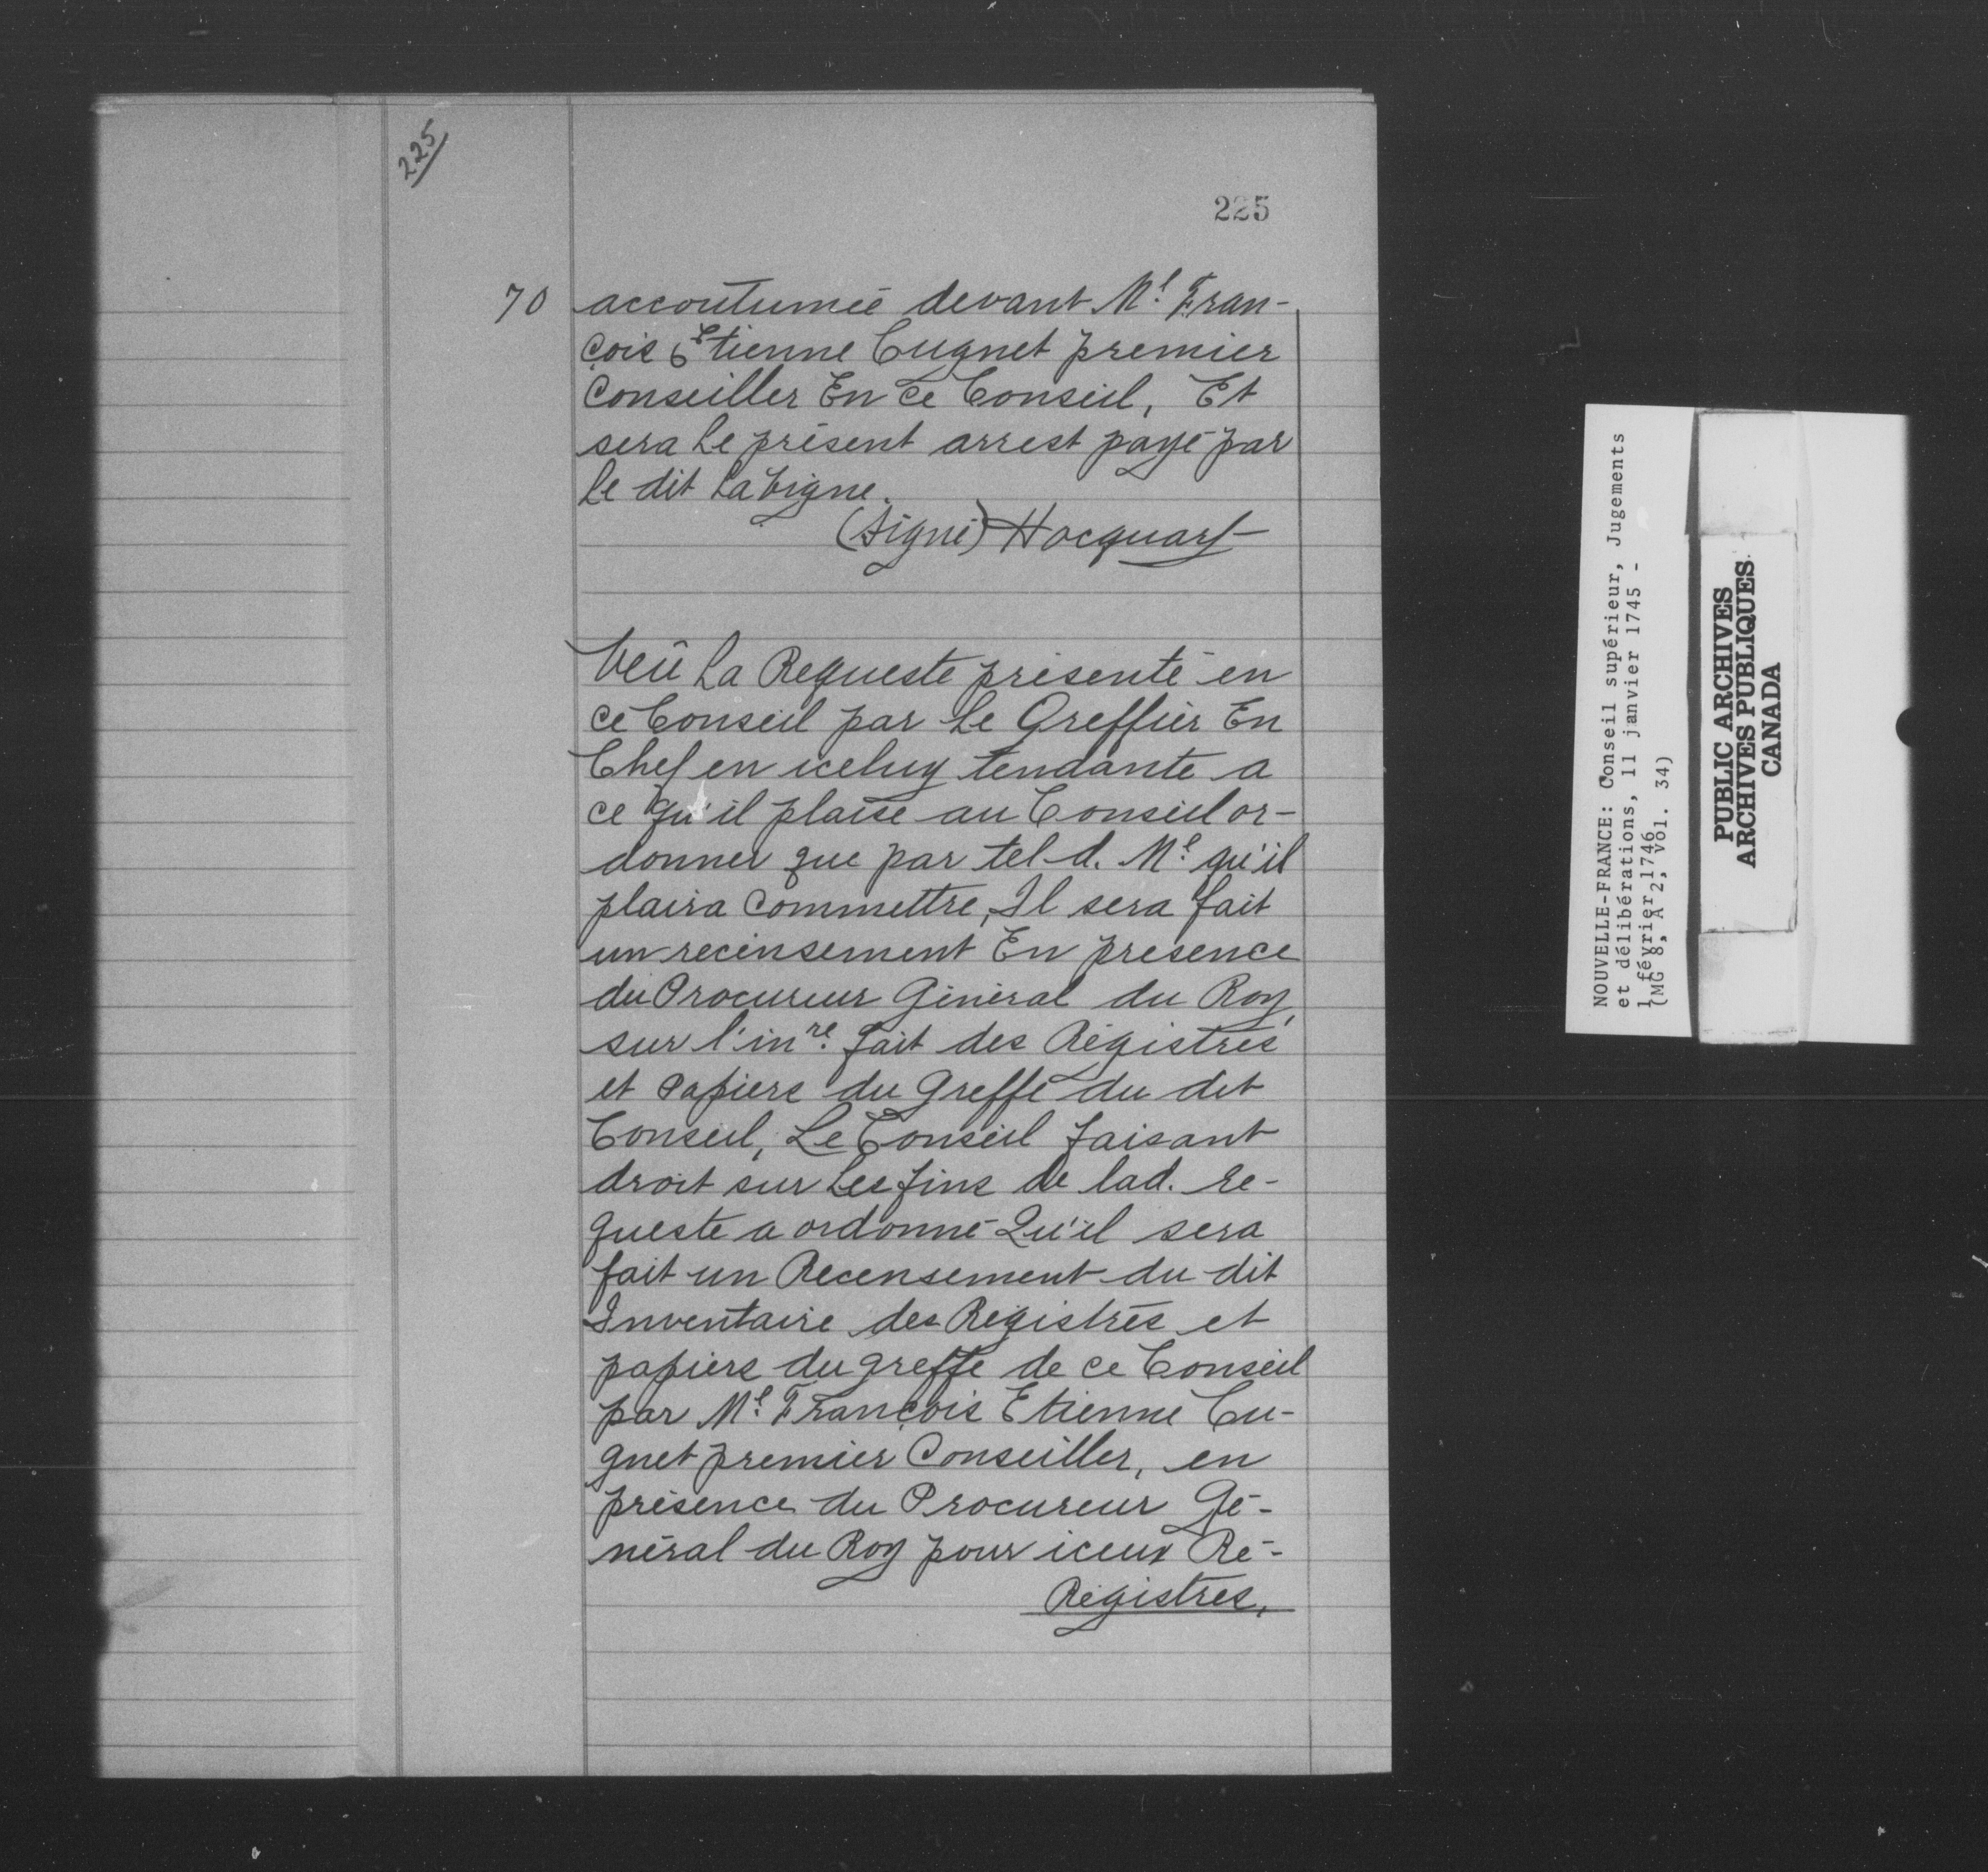 225
225
70 accoutumée devant Me. Fran-
çois Etienne Cugnet premier
Conseiller En ce Conseil, Et
sera Le présent arrest payé par
Le dit LaVigne.
(Signé) Hocquart
Veû La Requeste présenté en
ce Conseil par Le Greffier En
Chef en iceluy tendante a
ce qu'il plaise au Conseil or-
donner que par tel d. Me. qu'il
plaira Commettre, Il sera fait
un recensement En présence
du Procureur Général du Roy,
sur l'inre. fait des Régistres
et Papiers du Greffe du dit
Conseil, Le Conseil faisant
droit sur Les fins de lad. re-
queste a ordonné Qu'il sera
fait un Recensement du dit
Inventaire des Régistres et
papiers du greffe de ce Conseil
par Me. François Etienne Cu-
gnet premier Conseiller, en
présence du Procureur Gé-
néral du Roy pour iceux Ré-
Régistres,
NOUVELLE-FRANCE: Conseil supérieur, Jugements
et délibérations, 11 janvier 1745 -
1 février 1746
(MG 8, A 2, vol. 34)
PUBLIC ARCHIVES
ARCHIVES PUBLIQUES
CANADA